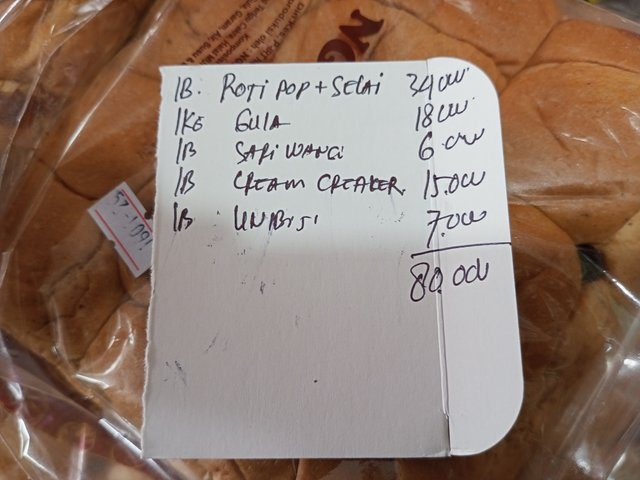 NG
1B. ROTI POP + SELAI 34000
1KE GULA 18000
1B SARI WANGI 6.000
1B CREAM CREAKER. 15.000
1B UNBISI 7.000
80.000